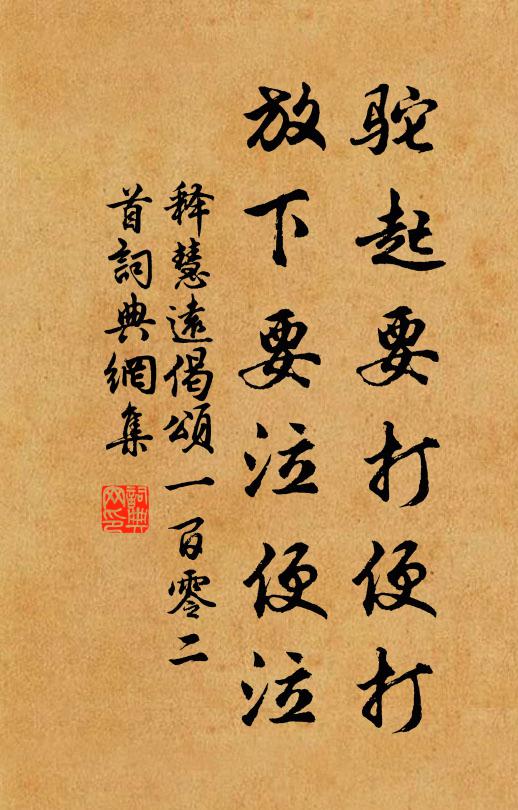 驼起要打便打
放下要泣便泣
释慧遠偈頌一百零二
首詞典網集
詞典
网印